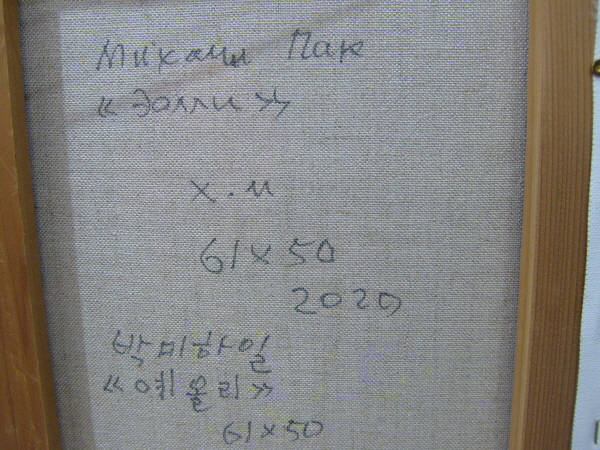 Михаил Пак
«Эолли»
х.м
61x50
2020
박미하일
«에올리»
61x50